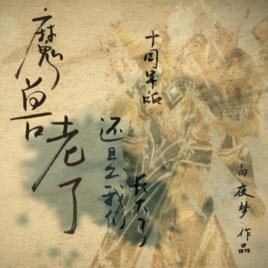 魔兽老了
还是我们
长不了
十周年品
白夜梦 作品